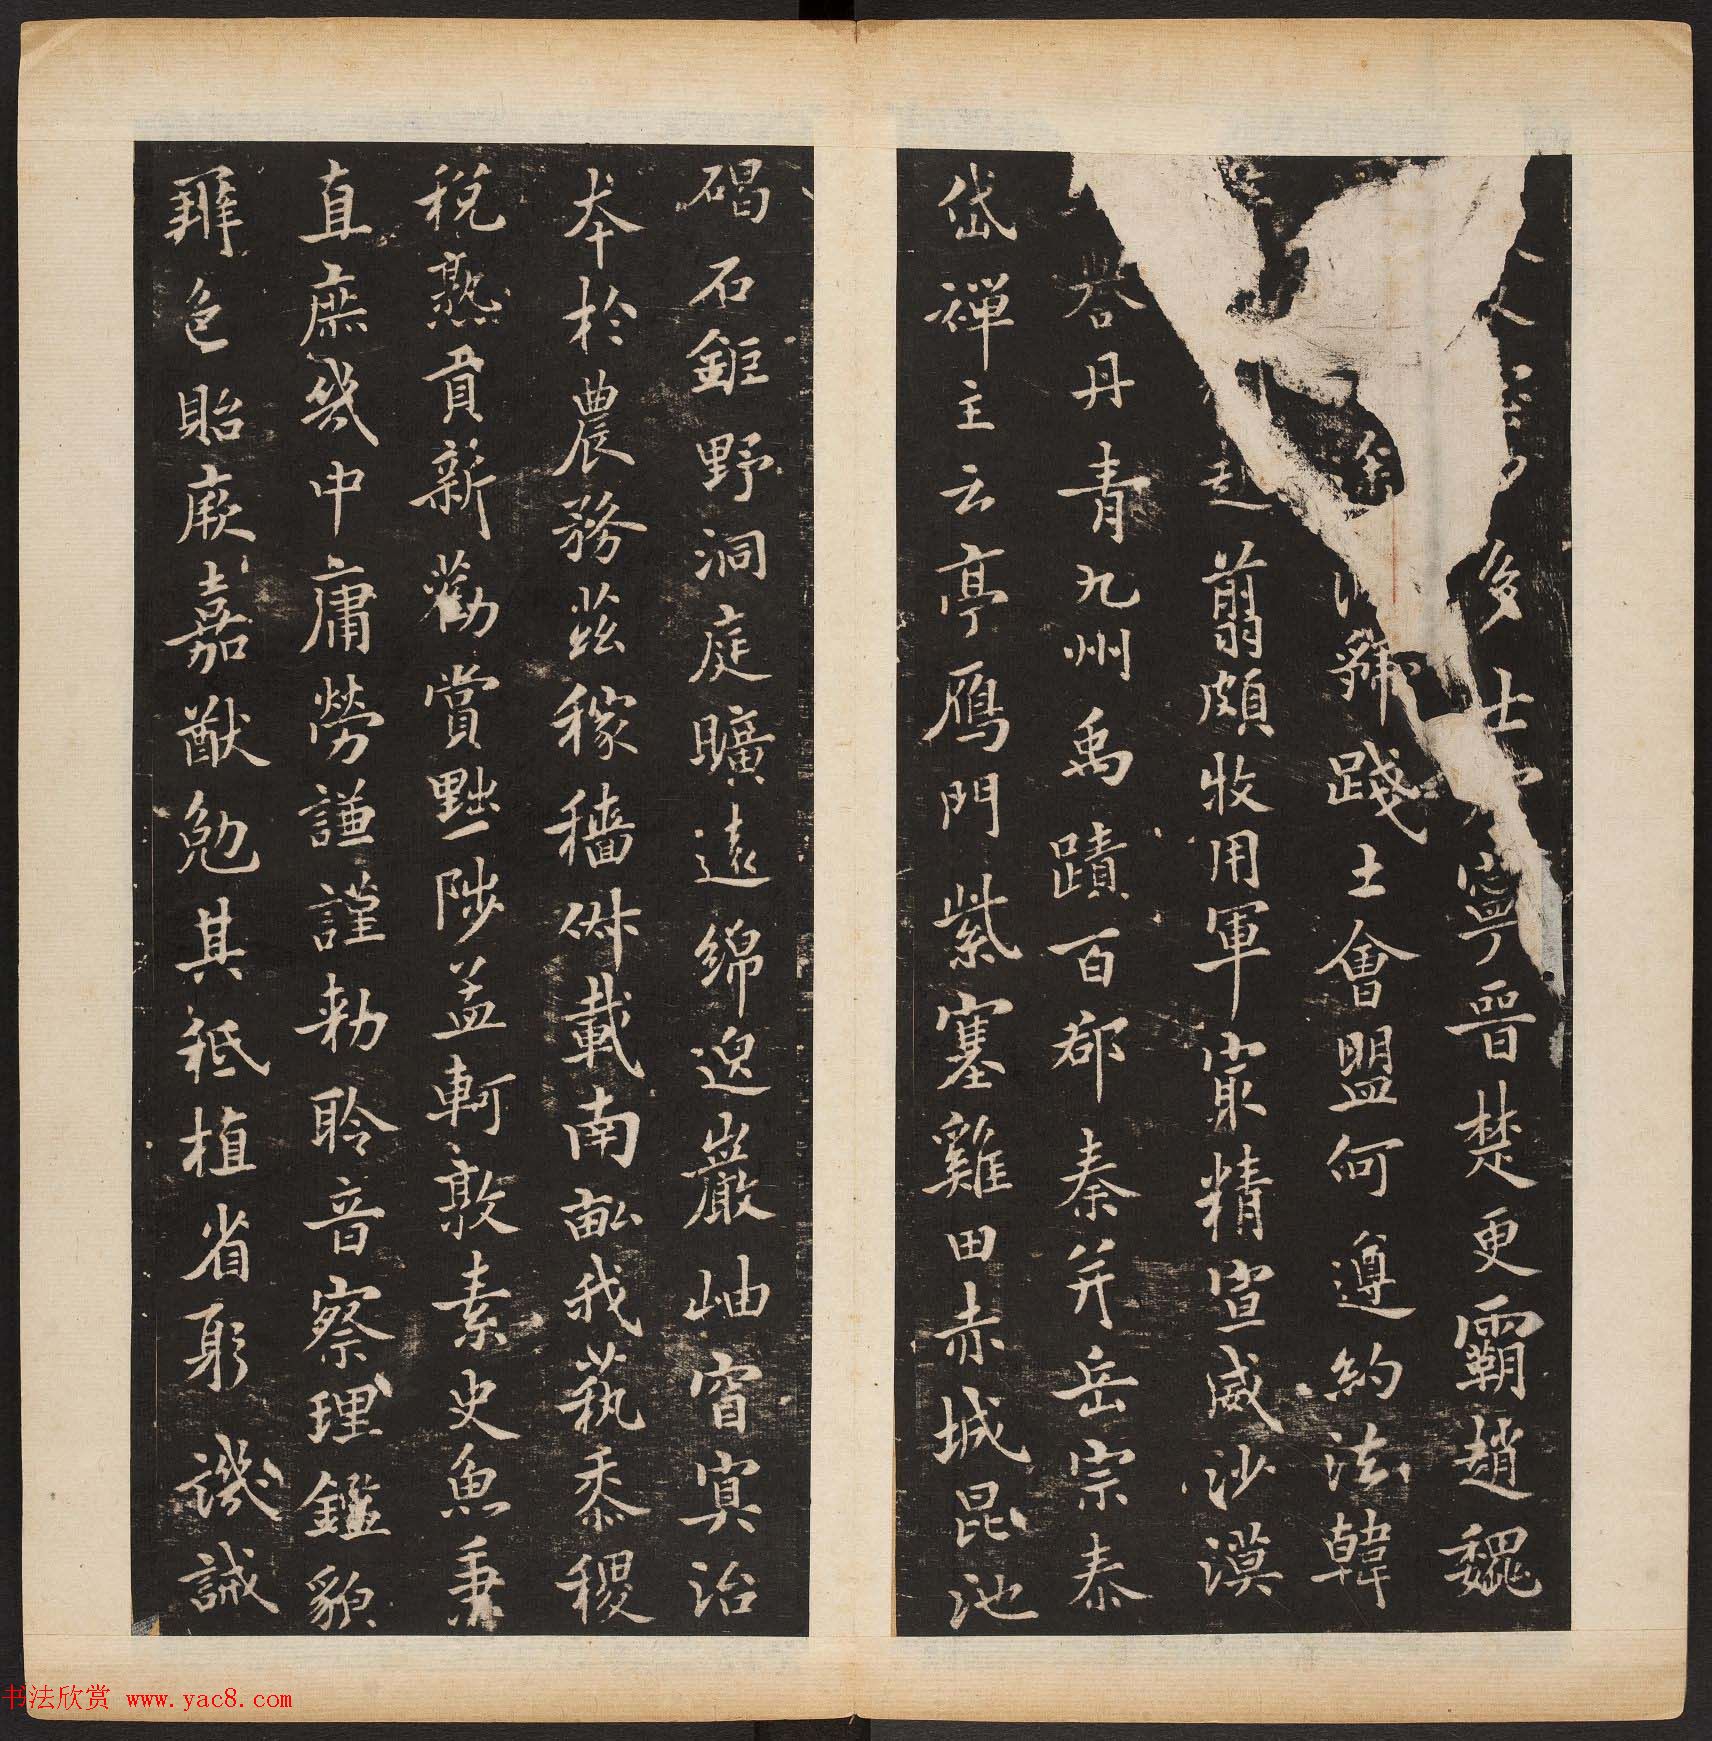 多士寧晉楚更霸趙魏
踐土會盟何遵約法韓
起翦頗牧用軍㝡精宣威沙漠
譽丹青九州禹蹟百郡秦并岳宗泰
岱禪主云亭鴈門紫塞雞田赤城昆池
碣石鉅野洞庭曠遠綿邈巖岫窅冥治
本於農務茲稼穡俶載南畝我蓺黍稷
稅熟貢新勸賞黜陟孟軻敦素史魚秉
直庶幾中庸勞謙謹勑聆音察理鑑貌
辨色貽厥嘉猷勉其祗植省躬譏誡
书法欣赏 www.yac8.com